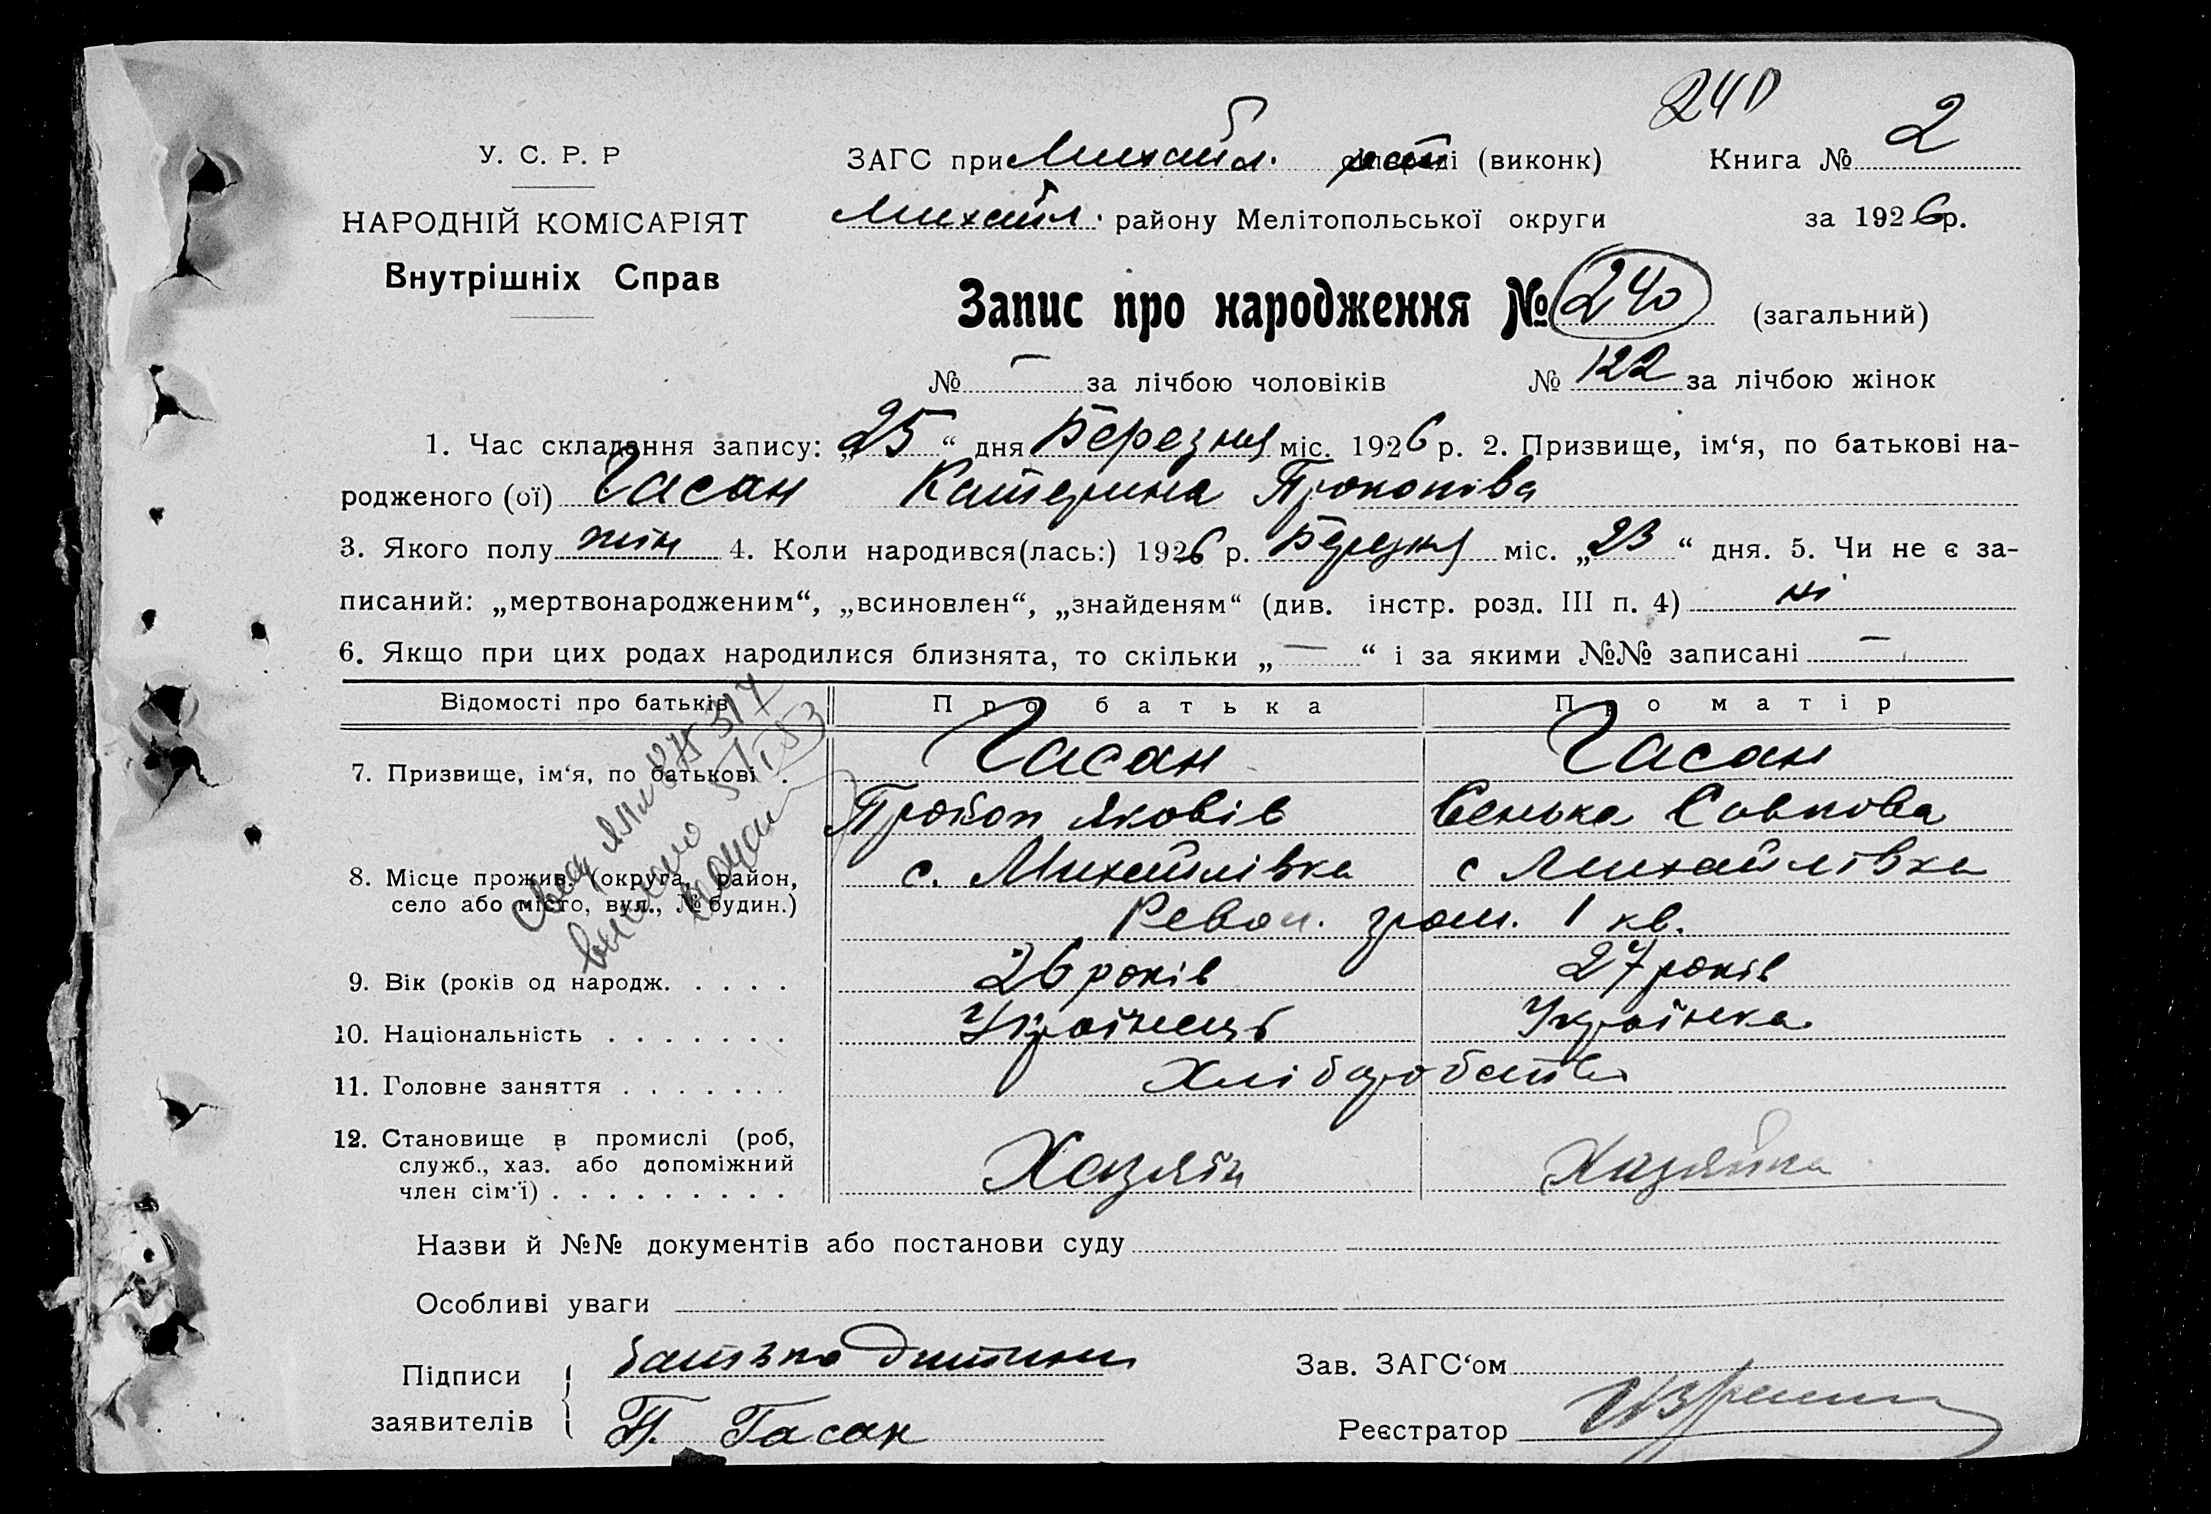 240
У. С. Р. Р
ЗАГС при Михайл. (виконк) Книга № 2
НАРОДНІЙ КОМІСАРІЯТ
Михайл. району Мелітопольської округи за 1926 р.
Внутрішніх Справ
Запис про народження № 240 (загальний)
№ — за лічбою чоловіків № 122 за лічбою жінок
1. Час складання запису: „25“ дня Березня міс. 1926 р. 2. Призвище, ім‘я, по батькові на-
родженого (ої) Гасан Катерина Прокопова
3. Якого полу жін 4. Коли народився(лась:) 1926 р. Березня міс. „23“ дня. 5. Чи не є за-
писаний: „мертвонародженим“, „всиновлен“, „знайденям“ (див. інстр. розд. III п. 4) ні
6. Якщо при цих родах народилися близнята, то скільки „—“ і за якими №№ записані —
Відомості про батьків Про батька Про матір
7. Призвище, ім‘я, по батькові . Гасан Гасан
Прокоп Яковів Сенька
8. Місце прожив. (округа, район, с. Михайлівка с Михайлівка
село або місто, вул., № будин.)
Револ. гром. 1 кв.
9. Вік (років од народж. . . . . 26 років 27 років
10. Національність . . . . . . . Українець Українка
11. Головне заняття . . . . . . . Хліборобство
12. Становище в промислі (роб,
служб., хаз. або допоміжний Хазяїн Хазяйка
член сім‘ї) . . . . . . . . . .
Назви й №№ документів або постанови суду
Особливі уваги
Підписи батько дитини Зав. ЗАГС‘ом
заявителів П. Гасан Реєстратор